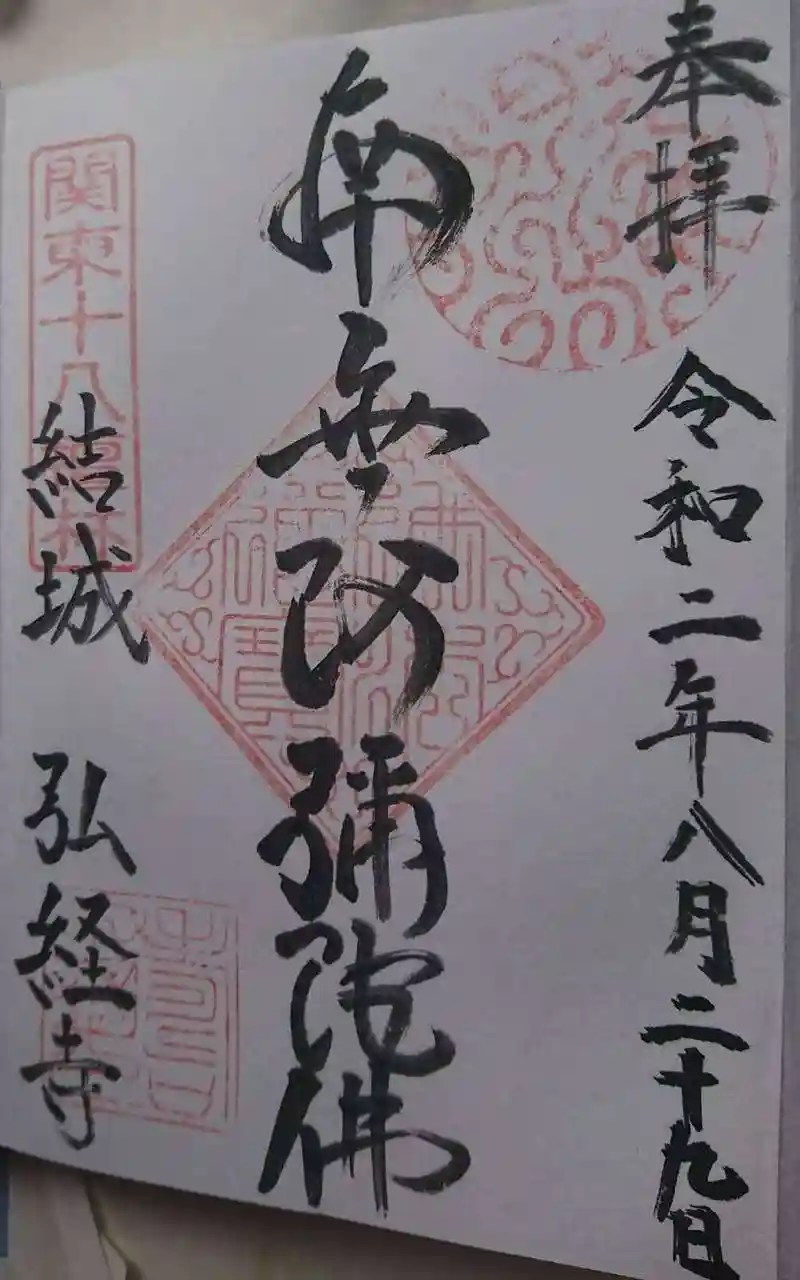 奉拝
令和二年八月二十九日
南無阿彌陀佛
関東十八檀林
結城 弘経寺